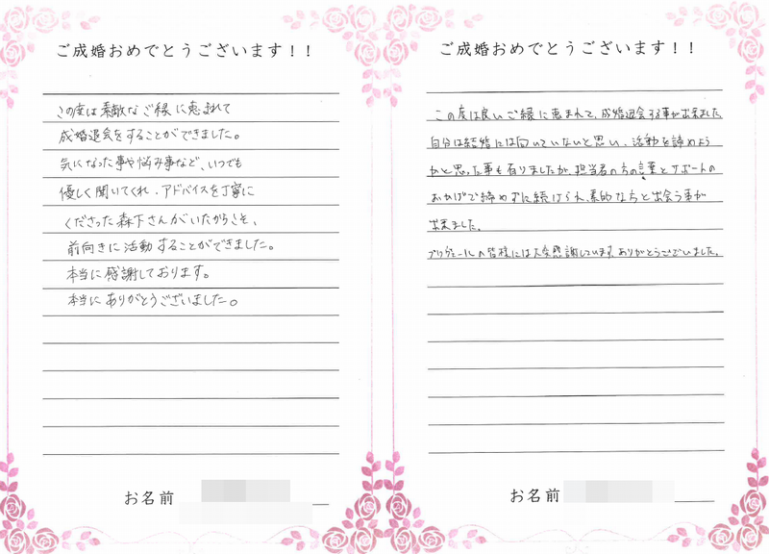 ご成婚おめでとうございます！！
この度は素敵なご縁に恵まれて
成婚退会をすることができました。
気になった事や悩み事など、いつでも
優しく聞いてくれ、アドバイスを丁寧に
くださった森下さんがいたからこそ、
前向きに活動することができました。
本当に感謝しております。
本当にありがとうございました。
お名前
ご成婚おめでとうございます！！
この度は良いご縁に恵まれて、成婚退会する事が出来ました
自分は結婚には向いていないと思い、活動を諦めよう
かと思った事も有りましたが、担当者の方の言葉とサポートの
おかげで諦めずに続けられ、素的な方と出会う事が
出来ました。
ブリヴェールの皆様には大変感謝しています。ありがとうございました。
お名前